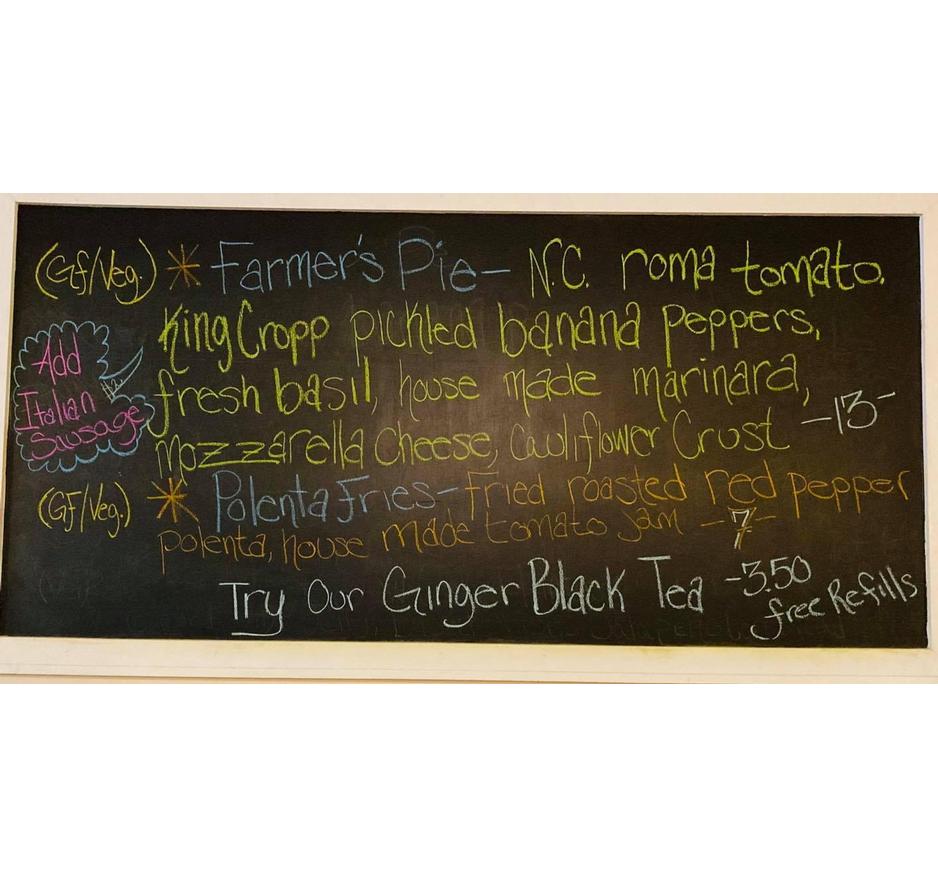 (Gf/Veg.) * Farmer's Pie - N.C. roma tomato,
King Cropp pickled banana peppers,
fresh basil, house made marinara,
mozzarella cheese, Cauliflower Crust -13-
Add
Italian
Sausage
(GF/Veg.) * Polenta Fries - fried roasted red pepper
polenta, house made tomato jam -7-
Try Our Ginger Black Tea -3.50
free Refills